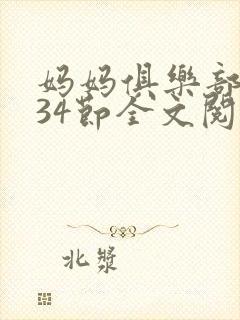 妈妈俱樂部
34節全文閱
北漿